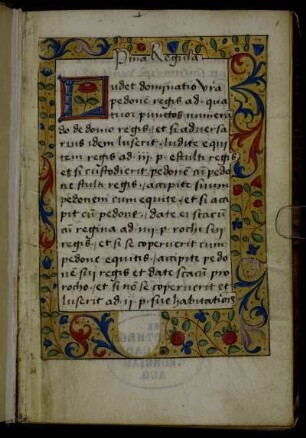 Prima Regula
Ludet dominatio vra
pedonē regis ad. qua
tuor punctos numera
do de domo regis / et si adversa
rius idem luserit / ludite equi
tem regis ad. iij. p. estulti regis
et si custodierit. pedonē cū pedo
ne stulti regis / accipite suum
pedonem cum equite / et si acci
pit cū pedone / date ei scacū
cū regina ad. iiij. p. rochi sui
regis / et si se coperuerit cum
pedone equitis / accipite pedo
nē sui regis et date scacū pro
rocho / et si nō se coperuerit et
luserit ad. ij. p. sue habitationis